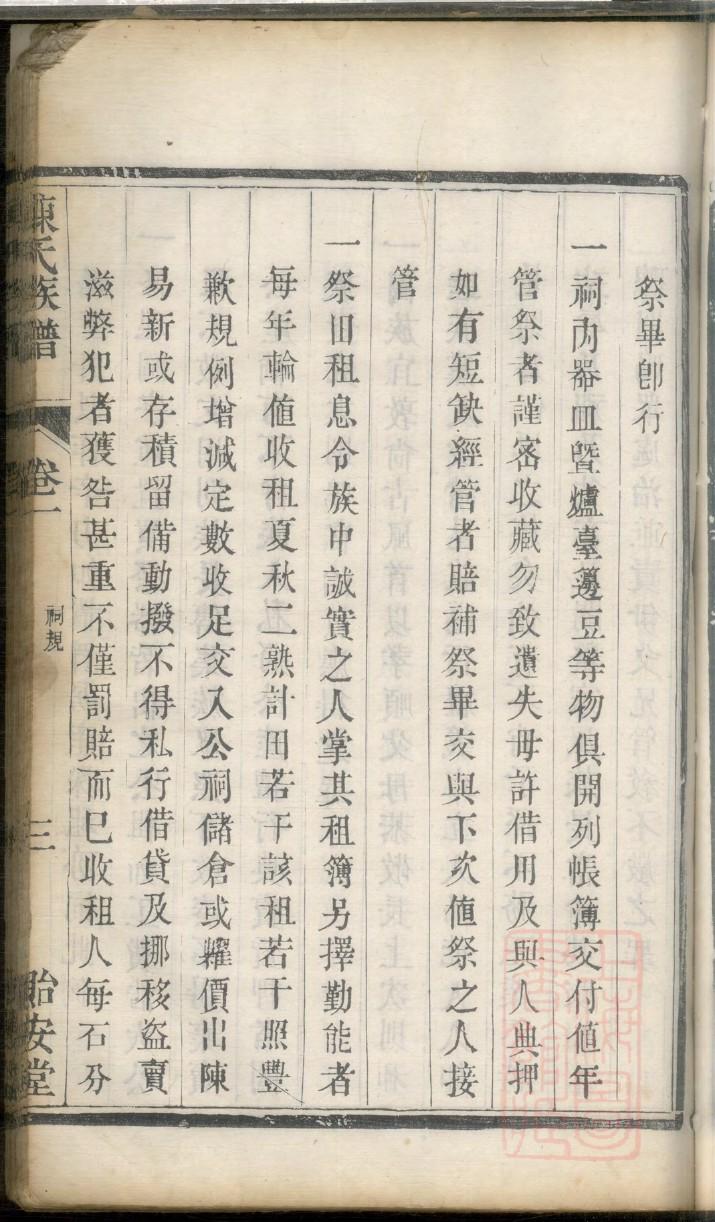 祭畢卽行
一祠內器皿曁爐臺籩豆等物俱開列帳簿交付値年
管祭者謹密收藏勿致遺失毋許借用及與人典押
如有短缺經管者賠補祭畢交與下次値祭之人接
管
一祭田租息令族中誠實之人掌其租簿另擇勤能者
每年輪値收租夏秋二熟計田若干該租若干照豐
歉規例增減定數收足交入公祠儲倉或糶價出陳
易新或存積留備動撥不得私行借貸及挪移盜賣
滋弊犯者獲咎甚重不僅罰賠而已收租人每石分
陳氏族譜
卷一
祠規
三
貽安堂